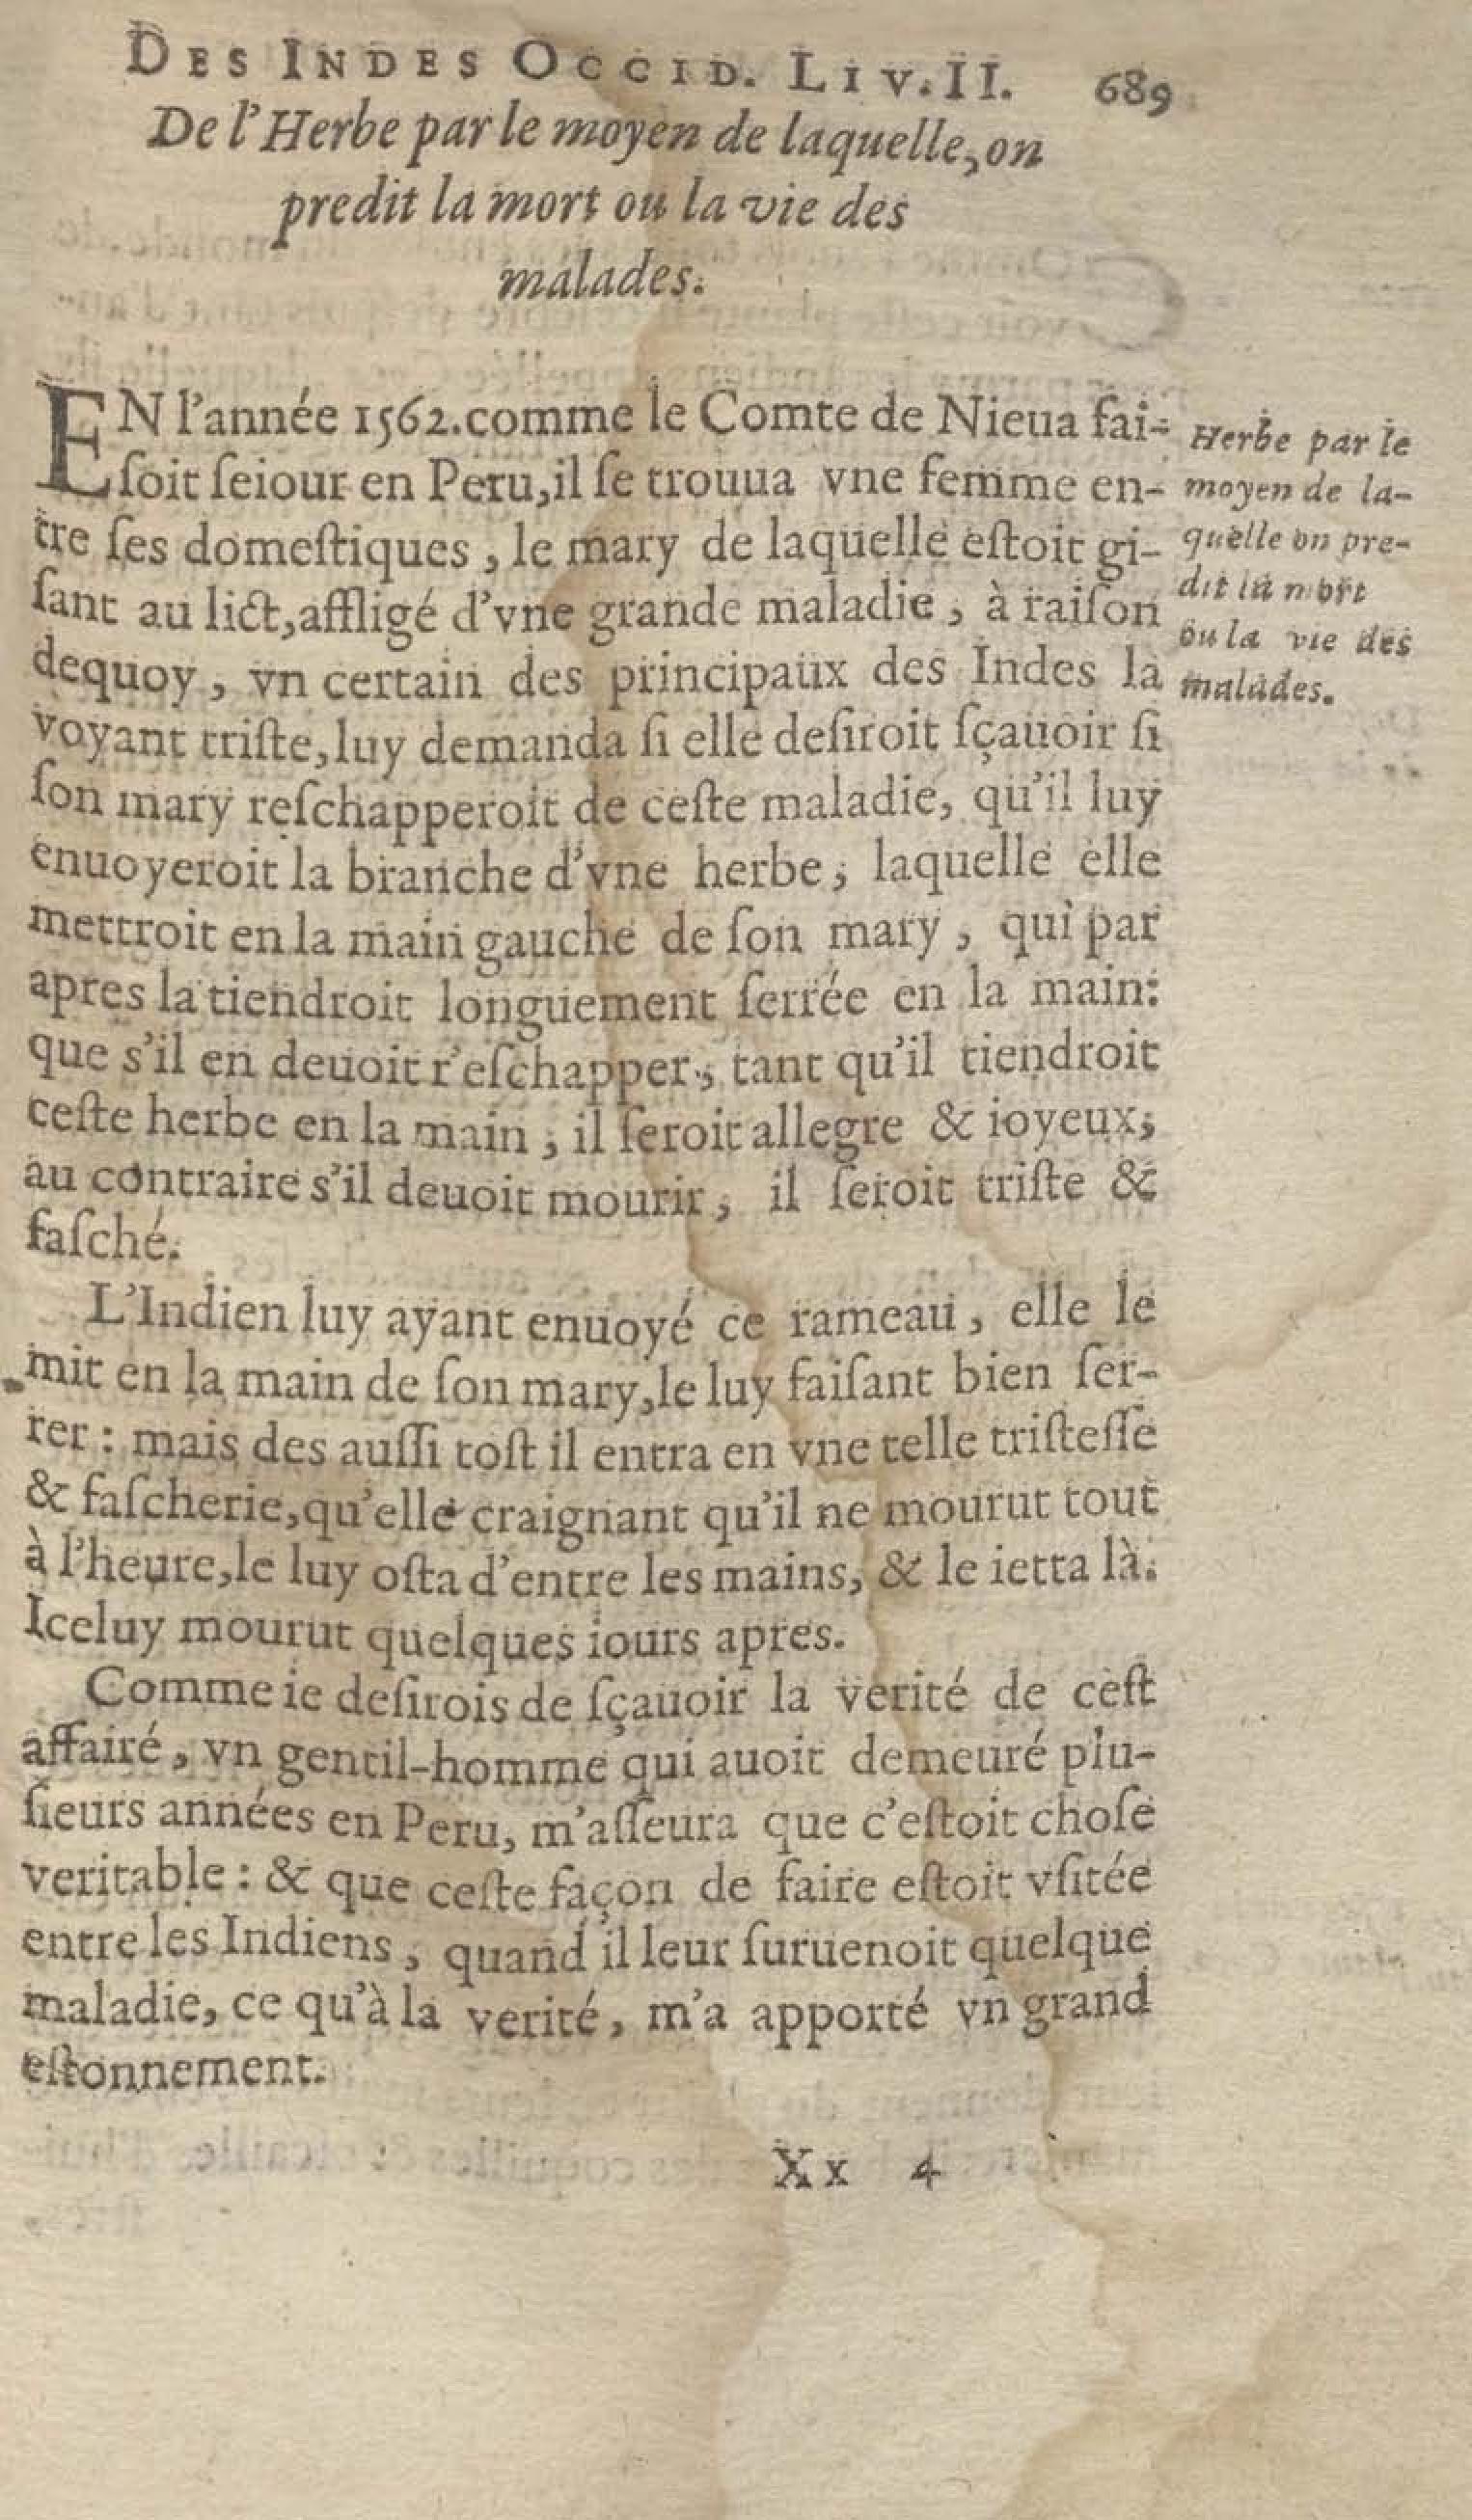 DES INDES OCCID. LIV. II. 689
De l'Herbe par le moyen de laquelle, on
predit la mort ou la vie des
malades.
EN l'année 1562. comme le Comte de Nieua fai-
ſoit ſeiour en Peru, il ſe trouua vne femme en-
tre ſes domeſtiques, le mary de laquelle eſtoit gi-
ſant au lict, affligé d'vne grande maladie, à raiſon
dequoy, vn certain des principaux des Indes la
voyant triſte, luy demanda ſi elle deſiroit ſçauoir ſi
ſon mary reſchapperoit de ceſte maladie, qu'il luy
enuoyeroit la branche d'vne herbe, laquelle elle
mettroit en la main gauche de ſon mary, qui par
apres la tiendroit longuement ſerrée en la main:
que s'il en deuoit r'eſchapper, tant qu'il tiendroit
ceſte herbe en la main, il ſeroit allegre & ioyeux;
au contraire s'il deuoit mourir, il ſeroit triſte &
faſché.
Herbe par le
moyen de la-
quelle on pre-
dit la mort
ou la vie des
malades.
L'Indien luy ayant enuoyé ce rameau, elle le
mit en la main de ſon mary, le luy faiſant bien ſer-
rer: mais des auſſi toſt il entra en vne telle triſteſſe
& faſcherie, qu'elle craignant qu'il ne mourut tout
à l'heure, le luy oſta d'entre les mains, & le ietta là.
Iceluy mourut quelques iours apres.
Comme ie deſirois de ſçauoir la verité de ceſt
affairé, vn gentil-homme qui auoit demeuré plu-
ſieurs années en Peru, m'aſſeura que c'eſtoit choſe
veritable: & que ceſte façon de faire eſtoit vſitée
entre les Indiens, quand il leur ſuruenoit quelque
maladie, ce qu'à la verité, m'a apporté vn grand
eſtonnement.
Xx 4